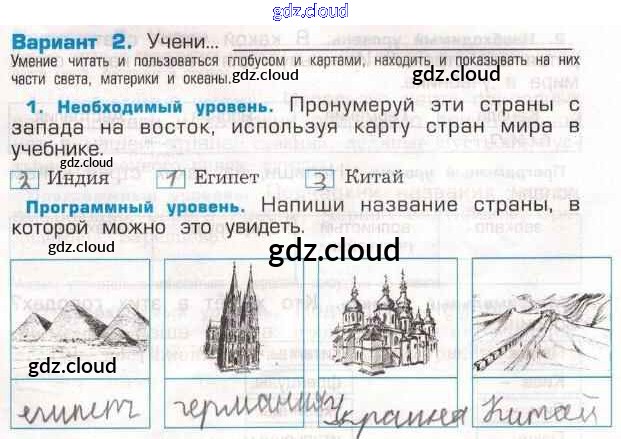 gdz.cloud
Вариант 2. Учени...
Умение читать и пользоваться глобусом и картами, находить и показывать на них
части света, материки и океаны.
gdz.cloud
1. Необходимый уровень. Пронумеруй эти страны с
запада на восток, используя карту стран мира в
учебнике.
gdz.cloud
2 Индия 1 Египет 3 Китай
Программный уровень. Напиши название страны, в
которой можно это увидеть.
gdz.cloud
gdz.cloud
gdz.cloud
gdz.cloud
gdz.cloud
египет германия Украина Китай
gdz.cloud